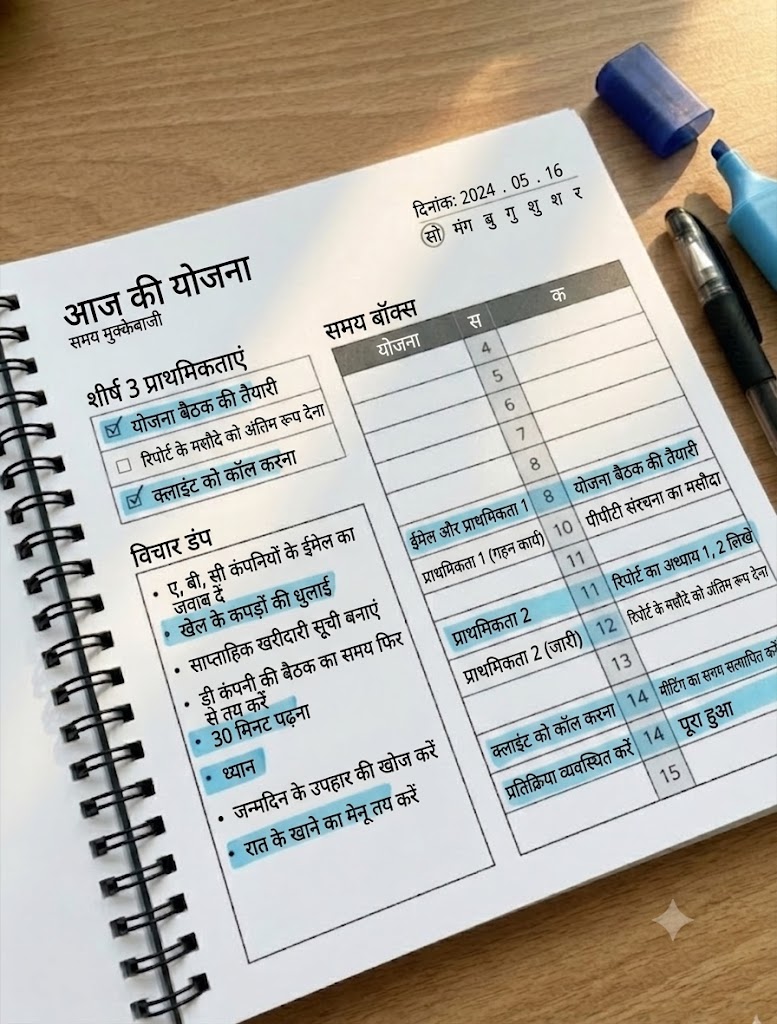 दिनांक: 2024 . 05 . 16
सो मंग बु गु शु श र
आज की योजना
समय मुक्केबाजी
शीर्ष 3 प्राथमिकताएं
योजना बैठक की तैयारी
रिपोर्ट के मसौदे को अंतिम रूप देना
क्लाइंट को कॉल करना
विचार डंप
• ए, बी, सी कंपनियों के ईमेल का
जवाब दें
• खेल के कपड़ों की धुलाई
• साप्ताहिक खरीदारी सूची बनाएं
• डी कंपनी की बैठक का समय फिर
से तय करें
• 30 मिनट पढ़ना
• ध्यान
• जन्मदिन के उपहार की खोज करें
• रात के खाने का मेनू तय करें
समय बॉक्स
योजना स क
4
5
6
7
8
ईमेल और प्राथमिकता 1 8 योजना बैठक की तैयारी
प्राथमिकता 1 (गहन कार्य) 10 पीपीटी संरचना का मसौदा
11
प्राथमिकता 2 11 रिपोर्ट का अध्याय 1, 2 लिखें
प्राथमिकता 2 (जारी) 12 रिपोर्ट के मसौदे को अंतिम रूप देना
13
क्लाइंट को कॉल करना 14 मीटिंग का समय सत्यापित करें
प्रतिक्रिया व्यवस्थित करें 14 पूरा हुआ
15